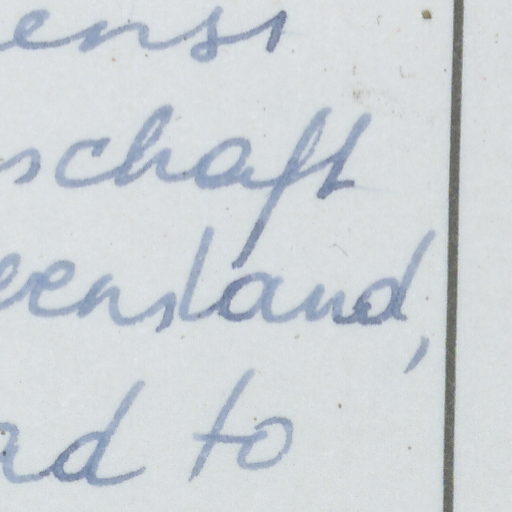 ensi
schaft
eensland,
rd to